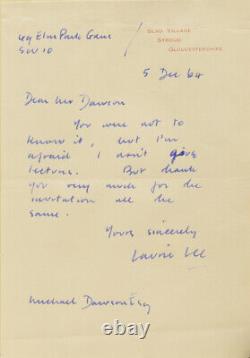 49 Elm Park Gdns
SW 10
SLAD VILLAGE
STROUD
GLOUCESTERSHIRE
5 Dec 64
Dear Mr Dawson
You were not to
know it, but I'm
afraid I don't give
lectures. But thank
you very much for the
invitation all the
same.
Yours sincerely
Laurie Lee
Michael Dawson Esq